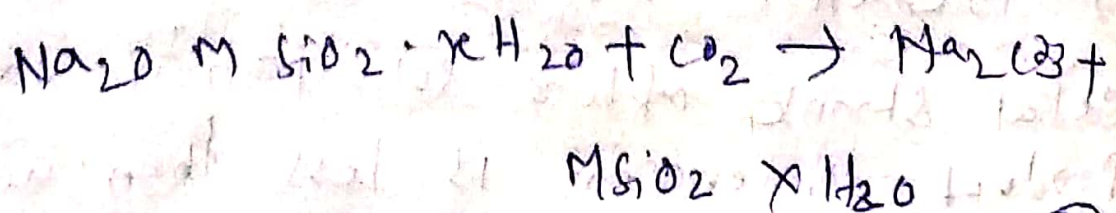 Na₂O M SiO₂ · xH₂O + CO₂ → Na₂CO3 +
MSiO₂ XH₂O